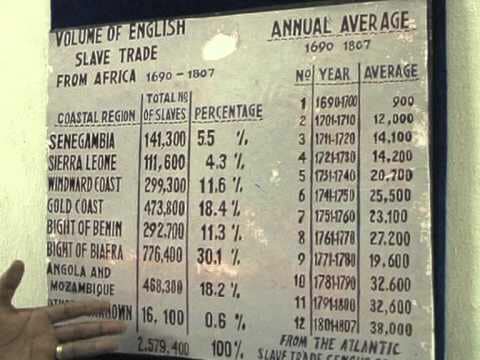 VOLUME OF ENGLISH
SLAVE TRADE
FROM AFRICA 1690-1807
COASTAL REGION TOTAL NO OF SLAVES PERCENTAGE
SENEGAMBIA 141,300 5.5 %
SIERRA LEONE 111,600 4.3 %
WINDWARD COAST 299,300 11.6 %
GOLD COAST 473,800 18.4 %
BIGHT OF BENIN 292,700 11.3 %
BIGHT OF BIAFRA 776,400 30.1 %
ANGOLA AND
MOZAMBIQUE 468,300 18.2 %
16,100 0.6 %
2,579,400 100 %
ANNUAL AVERAGE
1690 1807
NO YEAR AVERAGE
1 1690-1700 900
2 1701-1710 12,000
3 1711-1720 14,100
4 1721-1730 14,200
5 1731-1740 20,700
6 1741-1750 25,500
7 1751-1760 23,100
8 1761-1770 27,200
9 1771-1780 19,600
10 1781-1790 32,600
11 1791-1800 32,600
12 1801-1807 38,000
FROM THE ATLANTIC
SLAVE TRADE